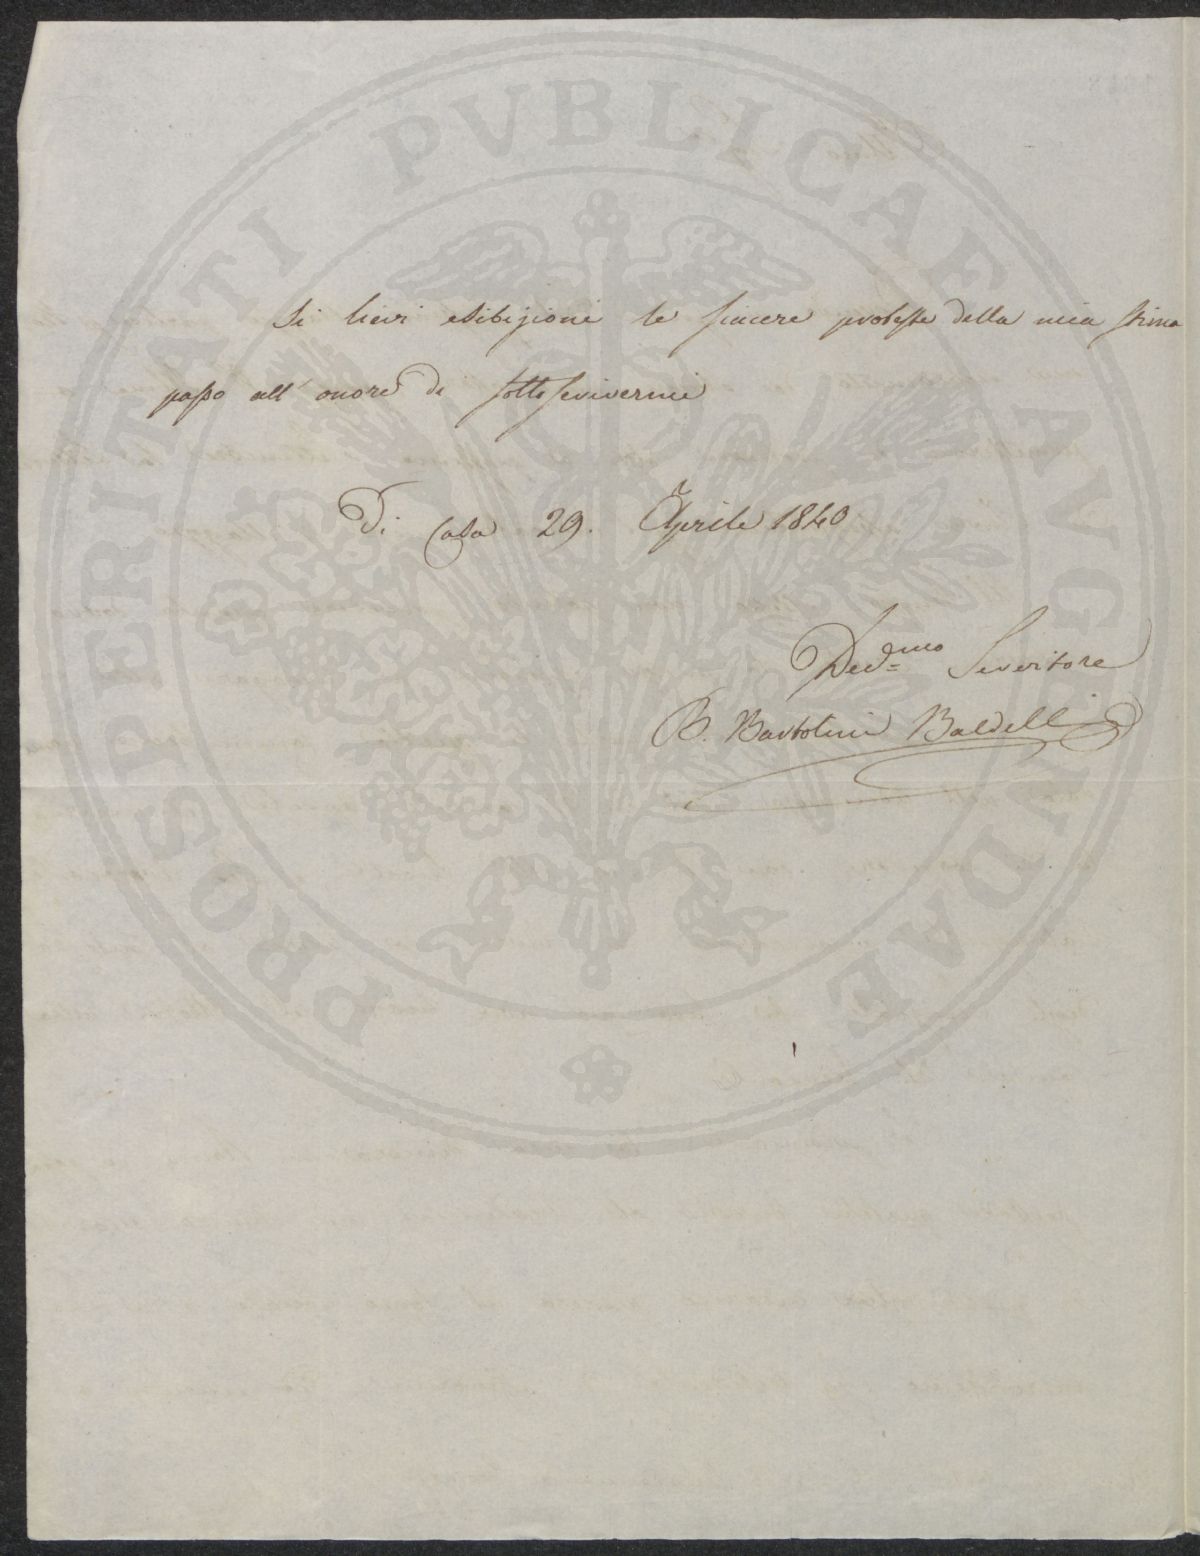 PROSPERITATI PVBLICAE AVGENDAE
Si lievi esibizioni le sincere proteste della mia stima
passo all' onore di sottoscrivermi
Di Casa 29. Aprile 1840
Dev.mo Servitore
B. Bartolini Baldelli